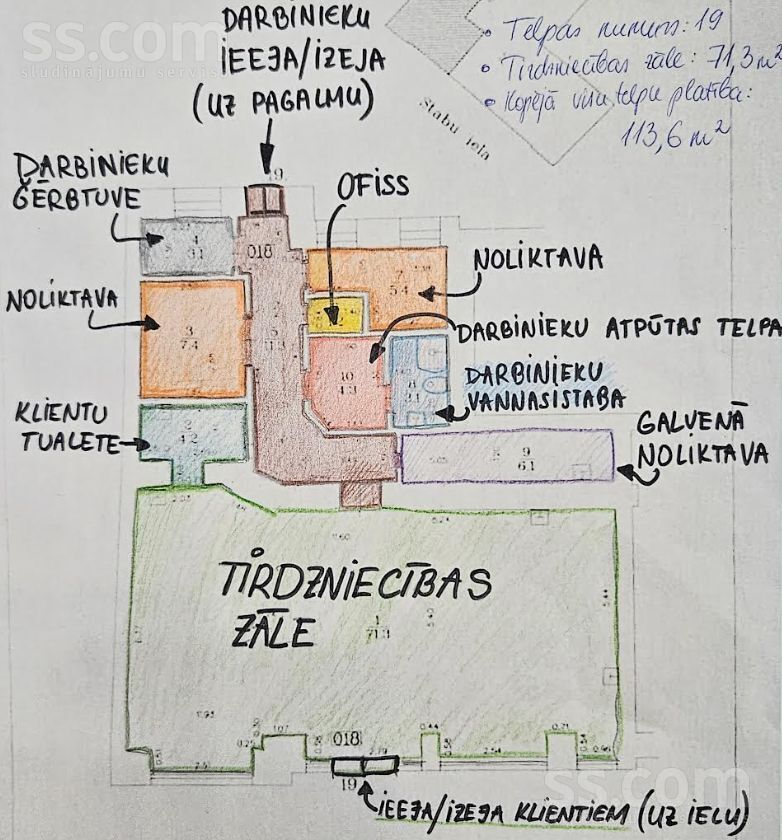 ss.com
sludinājumu serviss
DARBINIEKU
IEEJA/IZEJA
(UZ PAGALMU)
• Telpas numurs: 19
• Tirdzniecības zāle: 71,3 m²
• Kopējā visu telpu platība:
113,6 m²
Stabu iela
19
DARBINIEKU
ĢĒRBTUVE
OFISS
4
018
NOLIKTAVA
5.4
NOLIKTAVA
3
7.4
DARBINIEKU ATPŪTAS TELPA
10
4.3
DARBINIEKU
VANNASISTABA
KLIENTU
TUALETE
2
4.2
GALVENĀ
NOLIKTAVA
9
6.1
TIRDZNIECĪBAS
ZĀLE
1
71.3
018
19
ss.com
IEEJA/IZEJA KLIENTIEM (UZ IELU)